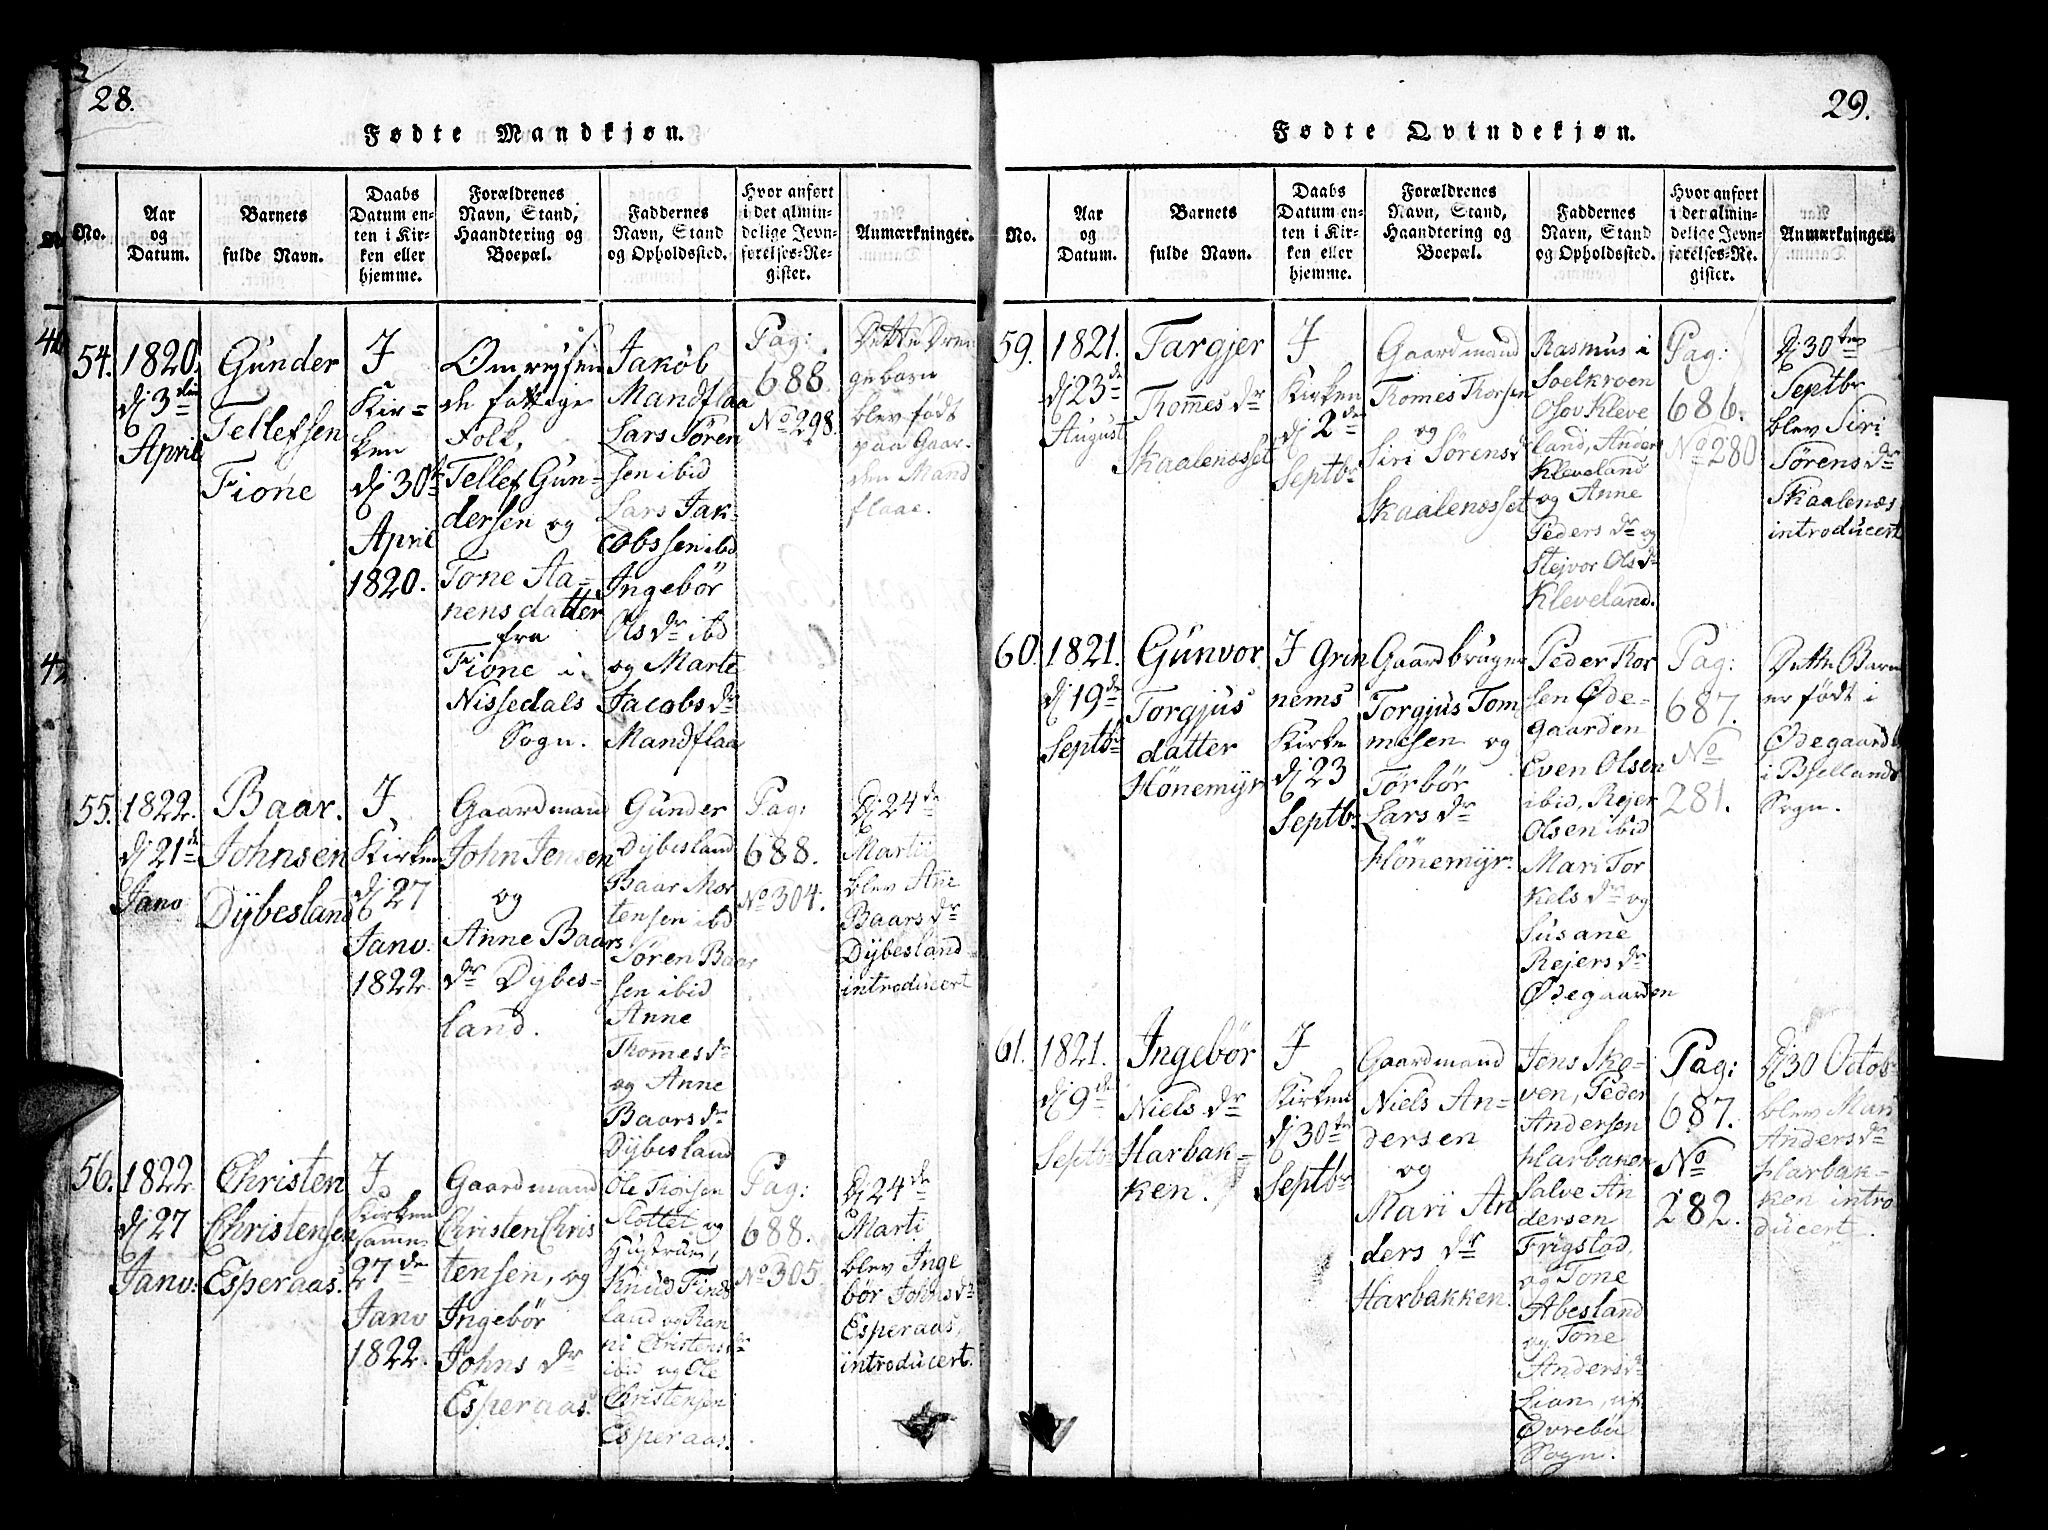 28.
Fødte Mandkjøn.
No.
Aar
og
Datum.
Barnets
fulde Navn.
Daabs
Datum en-
ten i Kir-
ken eller
hjemme.
Forældrenes
Navn, Stand,
Haandtering og
Boepæl.
Faddernes
Navn, Stand
og Opholdssted.
Hvor anført
i det almin-
delige Jevn-
førelses-Re-
gister.
Anmærkninger.
54.
1820.
d 3die
April
Gunder
Tellefsen
Fione
I
Kir=
ken
d 30te
April
1820.
Omrejsen
de fattige
Folk,
Tellef Gun-
dersen og
Tone Aa-
nensdatter
fra
Fione i
Nissedals
Sogn.
Jakob
Mandflaa
Lars Søren
sen ibid
Lars Jak-
cobssen ibd
Ingebør
Ols dr ibd
og Marte
Jacobs dr
Mandflaa
Pag:
688.
No 298.
Dette Dren
gebarn
blev født
paa Gaar-
den Mand
flaae.
55.
1822.
d 21de
Janv
Baar.
Johnsen
Dÿbesland
I
Kirken
d 27
Janv.
1822
Gaardmand
John Jensen
og
Anne Baars
dr Dÿbes-
land.
Gunder
Dÿbesland
Baar Mor
tensen ibd
Søren Baar
sen ibid
Anne
Thommes dr
og Anne
Baars dr
Dÿbesland
Pag:
688.
No 304.
D 24de
Martii
blev Ane
Baars dr
Dÿbesland
introducert
56.
1822
d 27
Janv:
Christen
Christensen
Esperaas.
I
Kirken
samme
27de
Janv
1822.
Gaardmand
Christen Chris
tensen, og
Ingebør
Johns dr
Esperaas.
Ole Tio⁠rsen
Slottet og
Hustrue,
Knud Finds
land og Ran
ni Christens dr
ibid og Ole
Christensen
Esperaas.
Pag:
688.
No 305.
D 24de
Marti
blev Inge
bør Johns dr
Esperaas,
introducert.
29.
Fødte Qvindekjøn.
No.
Aar
og
Datum.
Barnets
fulde Navn.
Daabs
Datum en-
ten i Kir-
ken eller
hjemme.
Forældrenes
Navn, Stand,
Haandtering og
Boepæl.
Faddernes
Navn, Stand
og Opholdssted.
Hvor anført
i det almin-
delige Jevn-
førelses-Re-
gister.
Anmærkninger.
59.
1821.
d 23de
August
Targjer
Thommes dr
Skaalenæsset
I
Kirken
d 2de
Septbr
Gaardmand
Thomes Thorsen
og
Siri Sørensd
Skaalenæsset
Rasmus i
Soelkroen
Osov Kleve
land, Anders
Kleveland
og Anne
Peders dr og
Stejvor Ols dr
Kleveland.
Pag:
686.
No 280
D 30te
Septbr
blev Siri
Sørens dr
Skaalenæs
introducert
60.
1821.
d 19de
Septbr
Gunvor
Torgjus
datter
Hönemÿr
I Grin
nems
Kirke
d 23
Septbr
Gaardbruger
Torgjus Tom
mesen og
Tørbør
Lars dr
Hönemÿr.
Peder Thor
sen Øde-
gaarden
Even Olsen
ibid, Rejer
Olsen ibid
Mari Tor
kels dr og
Susane
Rejers dr
Ødegaarden
Pag:
687.
No
281.
Dette Barn
er født i
Ødegaard
i Bjellands
Sogn.
61.
1821.
d 9de
Septbr
Ingebør
Niels dr
Harbak-
ken.
I
Kirken
d 30te
Septbr
Gaardmand
Niels An-
dersen
og
Mari An
ders dr
Harbakken.
Jens Sko-
ven, Peder
Andersen
Harbaken
Salve An
dersen
Frigstad,
og Tone
Abesland
og Tone
Anders dr
Lian, uf
Øvrebøe
Sogn.
Pag:
687.
No
282.
D 30 Octob:
blev Mari
Anders dr
Harbak-
ken intro
ducert.